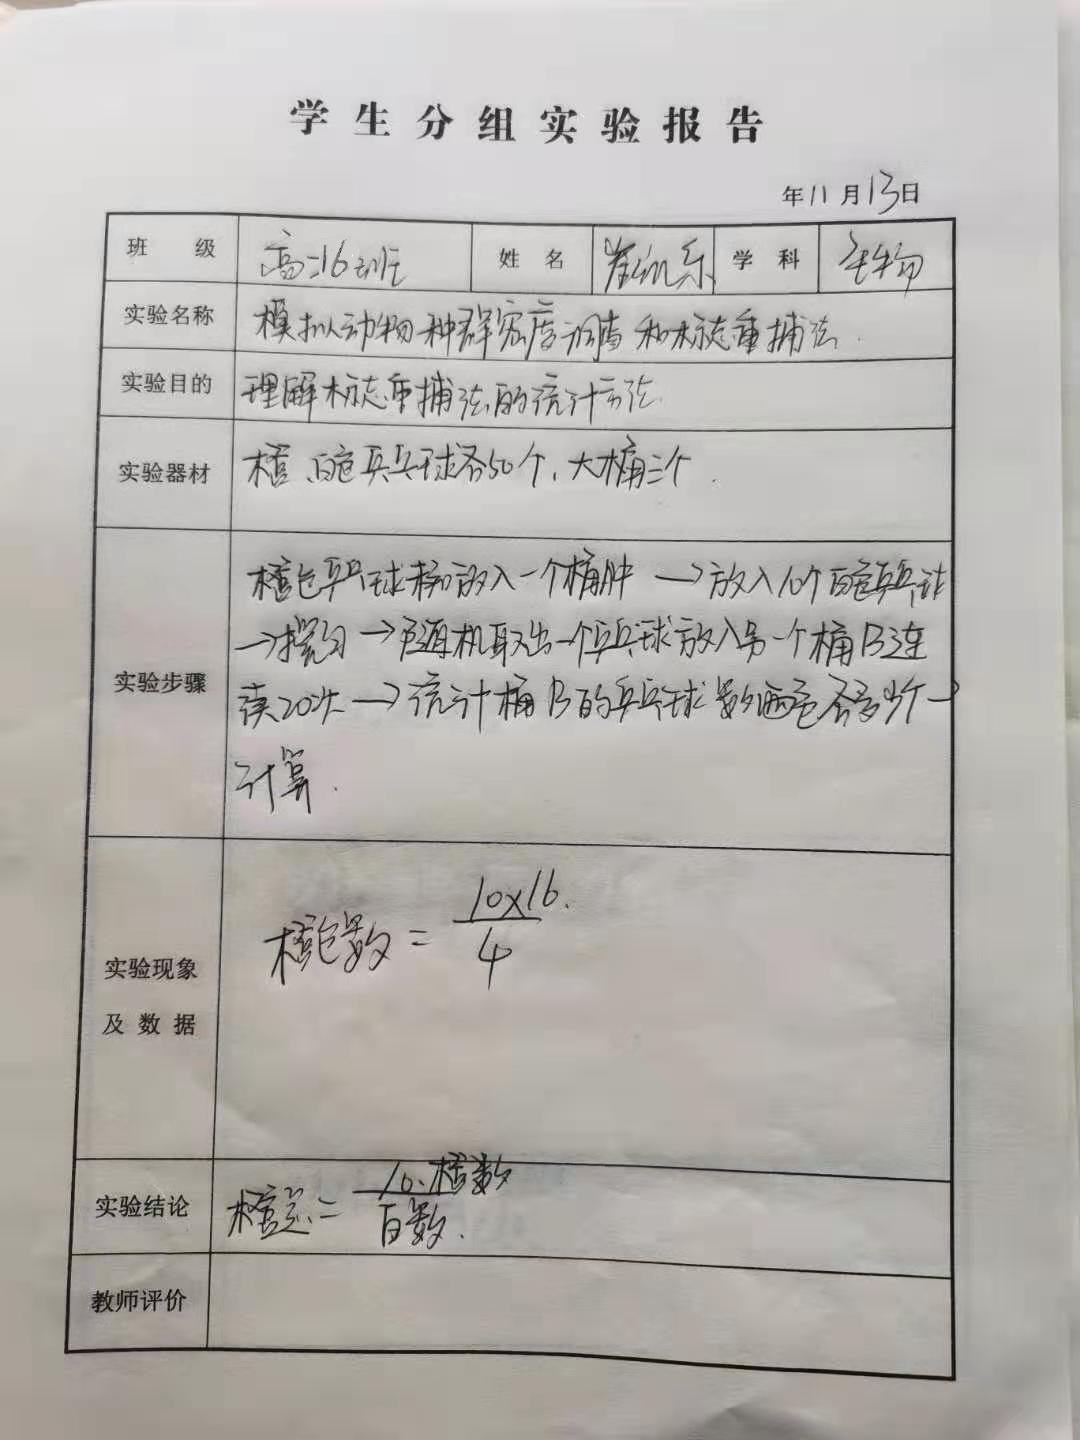 学生分组实验报告
年11月13日
班 级 高二16班 姓名 学科 生物
实验名称 模拟动物种群密度调查和标志重捕法.
实验目的 理解标志重捕法的统计方法
实验器材 橙、白色乒乓球各50个、大桶三个.
橙色乒乓球 放入一个桶 →放入10个白色乒乓球
实验步骤 →摇匀→随机取出一个乒乓球放入另一个桶B连
续20次→统计桶B的乒乓球数两色各多少个→
计算.
实验现象
及数据
橙色数=10×16./4
实验结论 橙总=10.橙数/白数.
教师评价